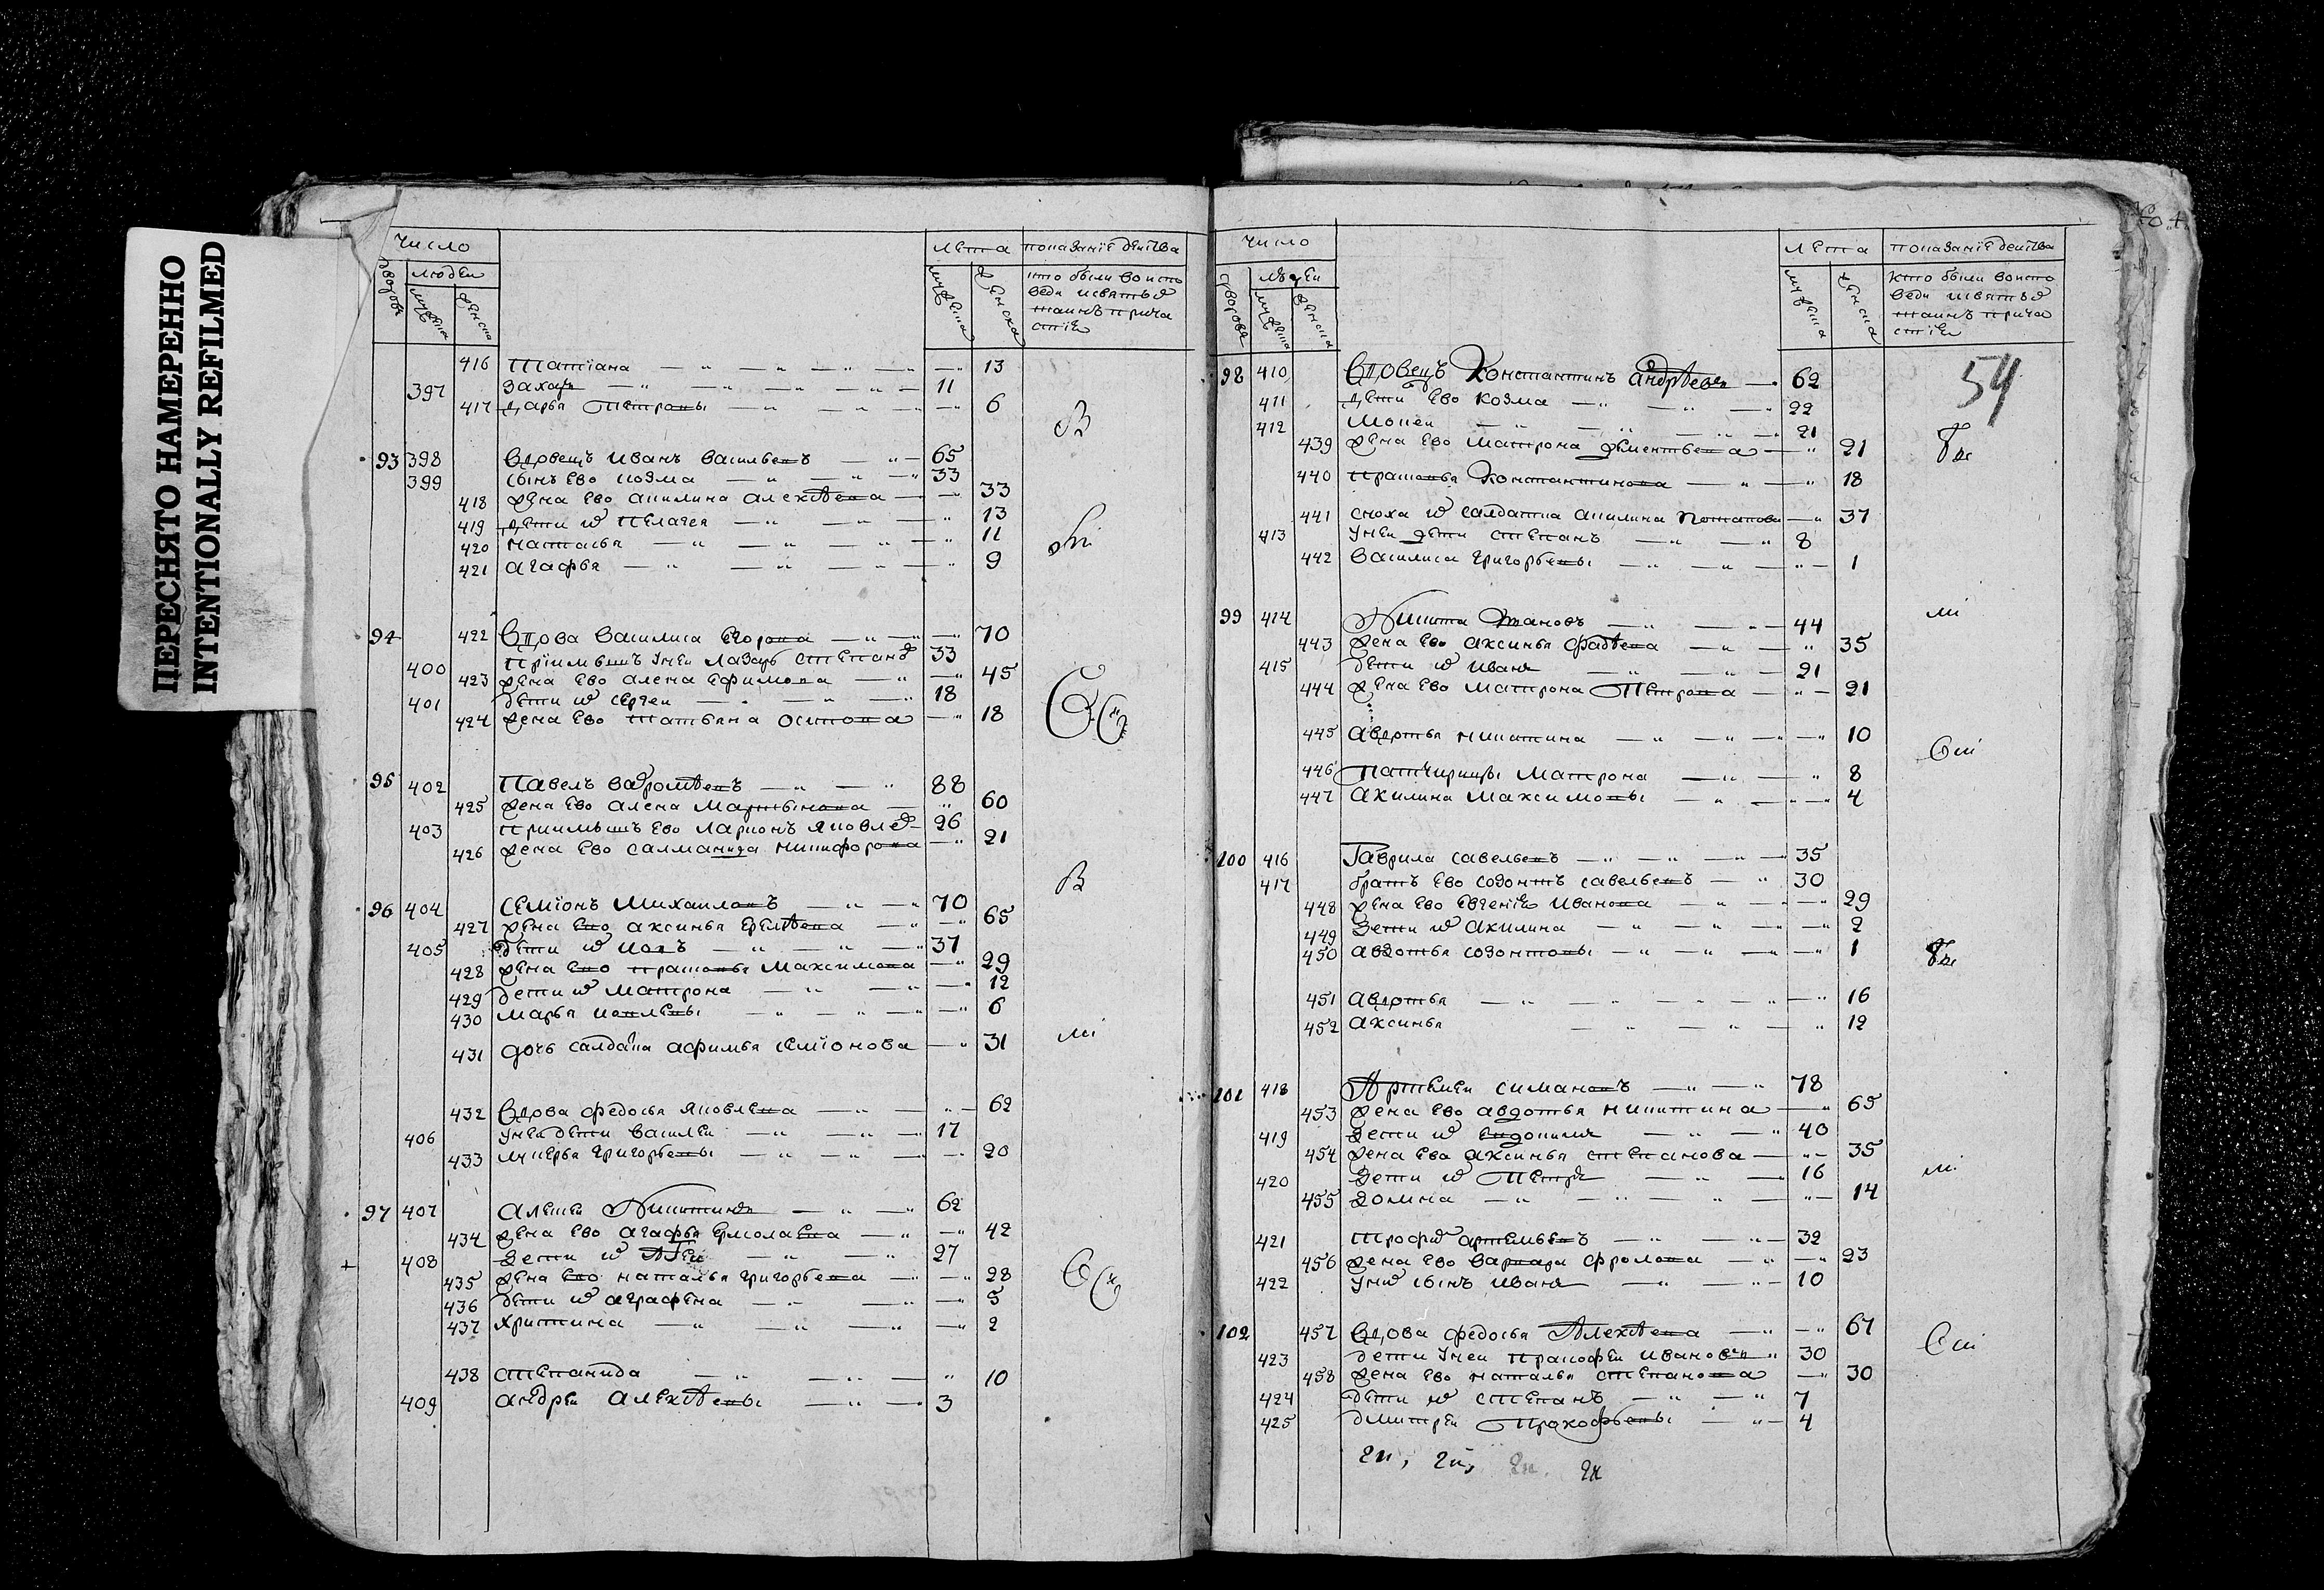 ПЕРЕСНЯТО НАМЕРЕННО
INTENTIONALLY REFILMED
Число
людеи
лета
показание деиства
кто были воиспо
веди исвятых
таинъ прича
стия
416 Татiана 13
397 Захаръ 11
417 дарья Петровы 6
93 398 Вдовецъ иванъ васильевъ 65
399 сынъ ево козма 33
418 жена ево акилина алексѣева 33
419 дети их пелагея 13
420 наталья 11
421 агафья 9
94 422 Вдова василиса Егорова 70
400 прiимышъ унеи лазарь степанов 33
423 жена ево алена Ефимова 45
401 дети их сергеи 18
424 жена ево татьяна осипова 18
95 402 Павелъ 88
425 жена ево алена мартынова 60
403 приимышъ ево ларионъ яковлев 26
426 жена ево саламанида никифорова 21
96 404 семiонъ михаиловъ 70
427 жена ево аксинья 65
405 дети их 37
428 жена ево прасковья максимова 29
429 дети их матрона 12
430 марья 6
431 дочь салдатка афимья семiонова 31
432 Вдова федосья яковлева 62
406 унеи дети василеи 17
433 лукерья григорьевы 20
97 407 алексеи Никитинъ 62
434 жена ево агафья ермолаева 42
408 дети их 27
435 жена ево наталья григорьева 28
436 дети их аграфена 5
437 христина 2
438 степанида 10
409 андреи алексѣевы 3
Число
людеи
лета
показание деиства
кто были воиспо
веди исвятых
таинъ прича
стия
54
98 410 Вдовецъ Константинъ андрѣевъ 62
411 дети ево козма 22
412 мокеи 21
439 жена ево матрона дементьева 21
440 прасковья Константинова 18
441 сноха их салдатка акилина потапова 37
413 унеи дети степанъ 8
442 василиса григорьевы 1
99 414 Никита 44
443 жена ево аксинья фадѣева 35
415 дети их иванъ 21
444 жена ево матрона Петрова 21
445 авдотья никитина 10
446 патчирицы матрона 8
447 акилина максимовы 4
100 416 Гаврила савельевъ 35
417 братъ ево созонтъ савельевъ 30
448 жена ево евгения иванова 29
449 дети их акилина 2
450 авдотья созонтовы 1
451 авдотья 16
452 аксинья 12
101 418 Артемеи симановъ 78
453 жена ево авдотья никитина 65
419 дети их евдокимъ 40
454 жена ево аксинья степанова 35
420 дети их Петръ 16
455 домна 14
421 трофим артемьевъ 32
456 жена ево варвара фролова 23
422 уних сынъ иванъ 10
102 457 Вдова федосья Алексѣева 67
423 дети унеи пракофеи ивановъ 30
458 жена ево наталья степанова 30
424 дети их степанъ 7
425 дмитреи Прокофьевы 4